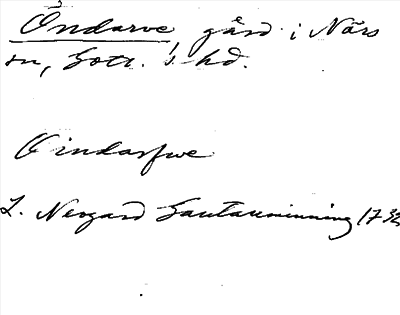 Öndarve gård i Närs
sn, Gotl. s. hd.
Oindarfwe
L. Nergard Gautauminning 1732